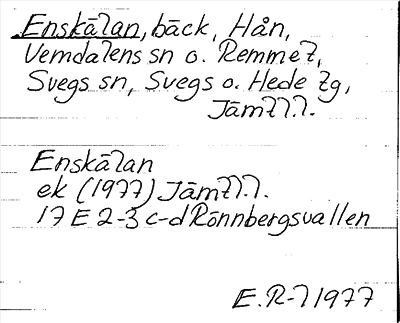 Enskålan, bäck, Hån,
Vemdalens sn o. Remmet,
Svegs sn, Svegs o. Hede tg,
Jämtl.l.
Enskålan
ek (1977) Jämtl.l.
17 E 2-3 c-d Rönnbergsvallen
E.R-l 1977